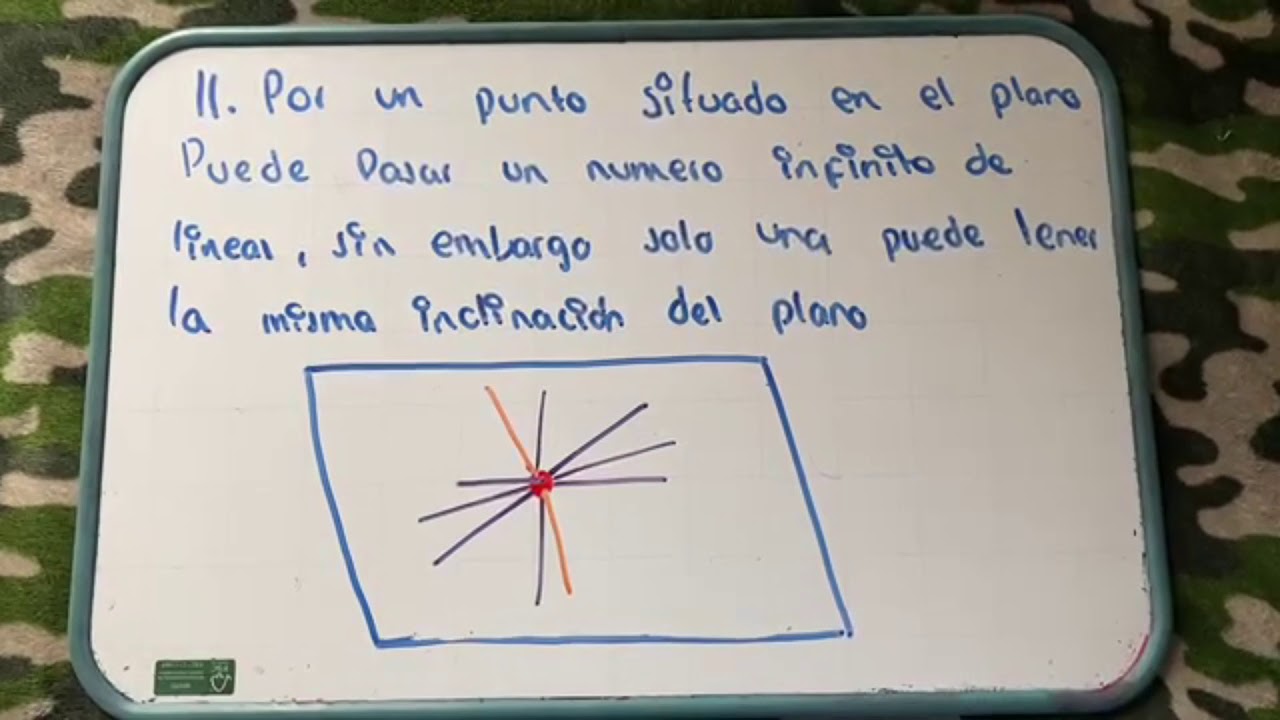 11. Por un punto situado en el plano
Puede Pasar un numero infinito de
lineas, sin embargo solo una puede tener
la misma inclinación del plano